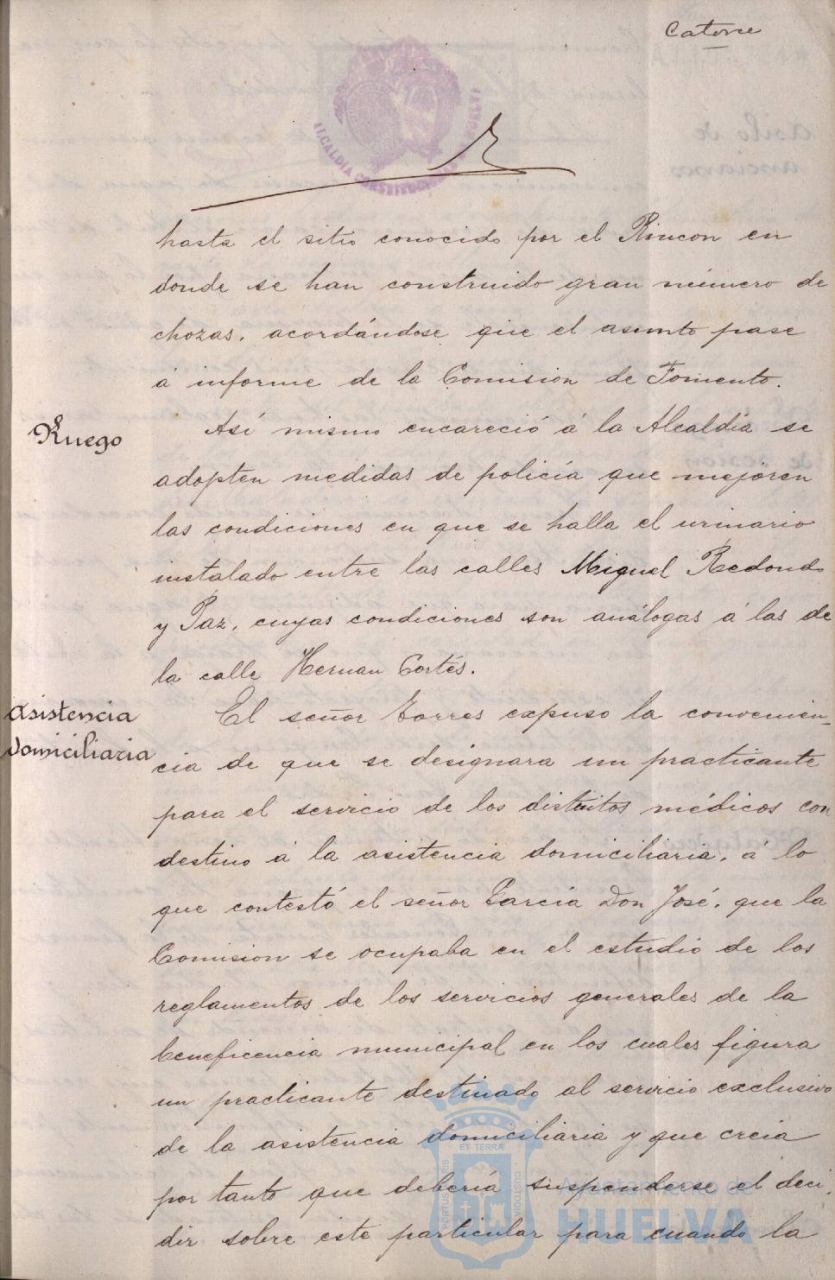 Catorce
ALCALDIA CONSTITUCIONAL
hasta el sitio conocido por el Rincon en
donde se han construido gran número de
chozas, acordándose que el asunto pase
á informe de la Comision de Fomento.
Ruego
Así mismo encareció á la Alcaldía se
adopten medidas de policía que mejoren
las condiciones en que se halla el urinario
instalado entre las calles Miguel Redondo
y Paz, cuyas condiciones son análogas á las de
la calle Hernan Cortés.
Asistencia
domiciliaria
El señor Torres expuso la convenien-
cia de que se designara un practicante
para el servicio de los distritos médicos con
destino á la asistencia domiciliaria, á lo
que contestó el señor García Don José, que la
Comision se ocupaba en el estudio de los
reglamentos de los servicios generales de la
beneficencia municipal en los cuales figura
un practicante destinado al servicio exclusivo
de la asistencia domiciliaria y que creia
por tanto que debería suspenderse el deci-
dir sobre este particular para cuando la
ET TERRÆ
Ayuntamiento de
HUELVA